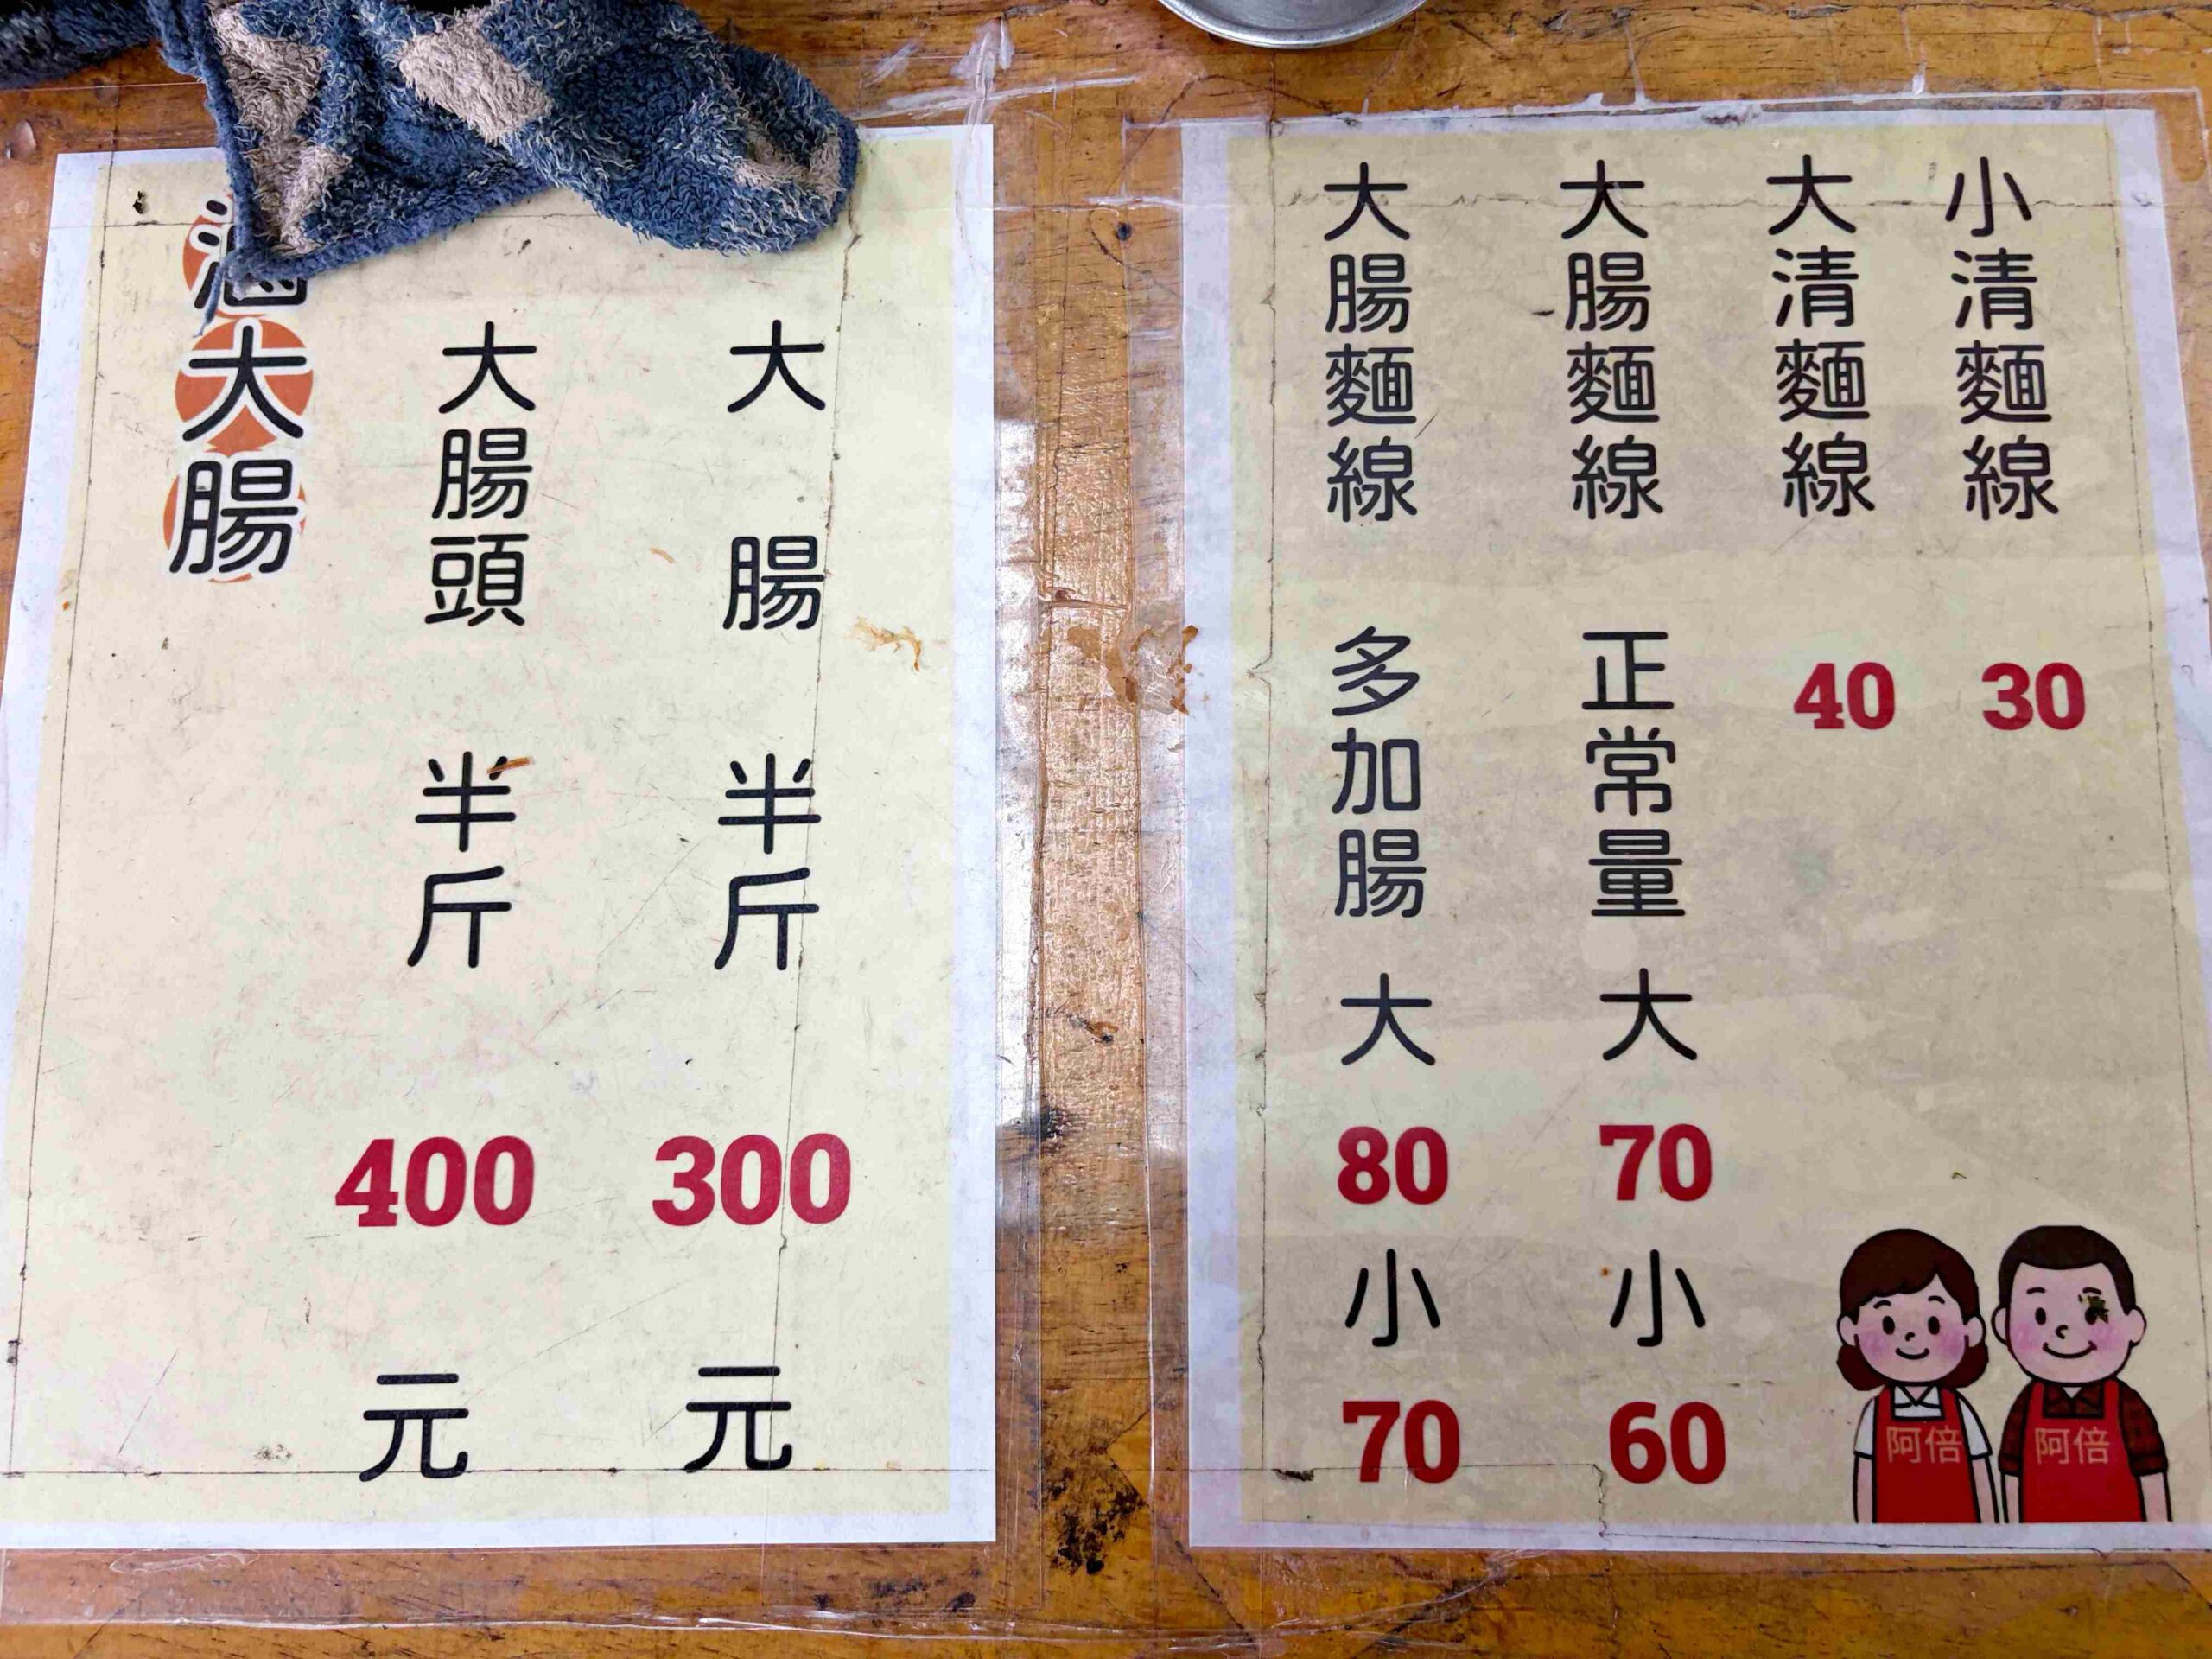 小清麵線 30
大清麵線 40
大腸麵線 正常量 大 70 小 60
大腸麵線 多加腸 大 80 小 70
阿倍
阿倍
大腸 半斤 300 元
大腸頭 半斤 400 元
大腸